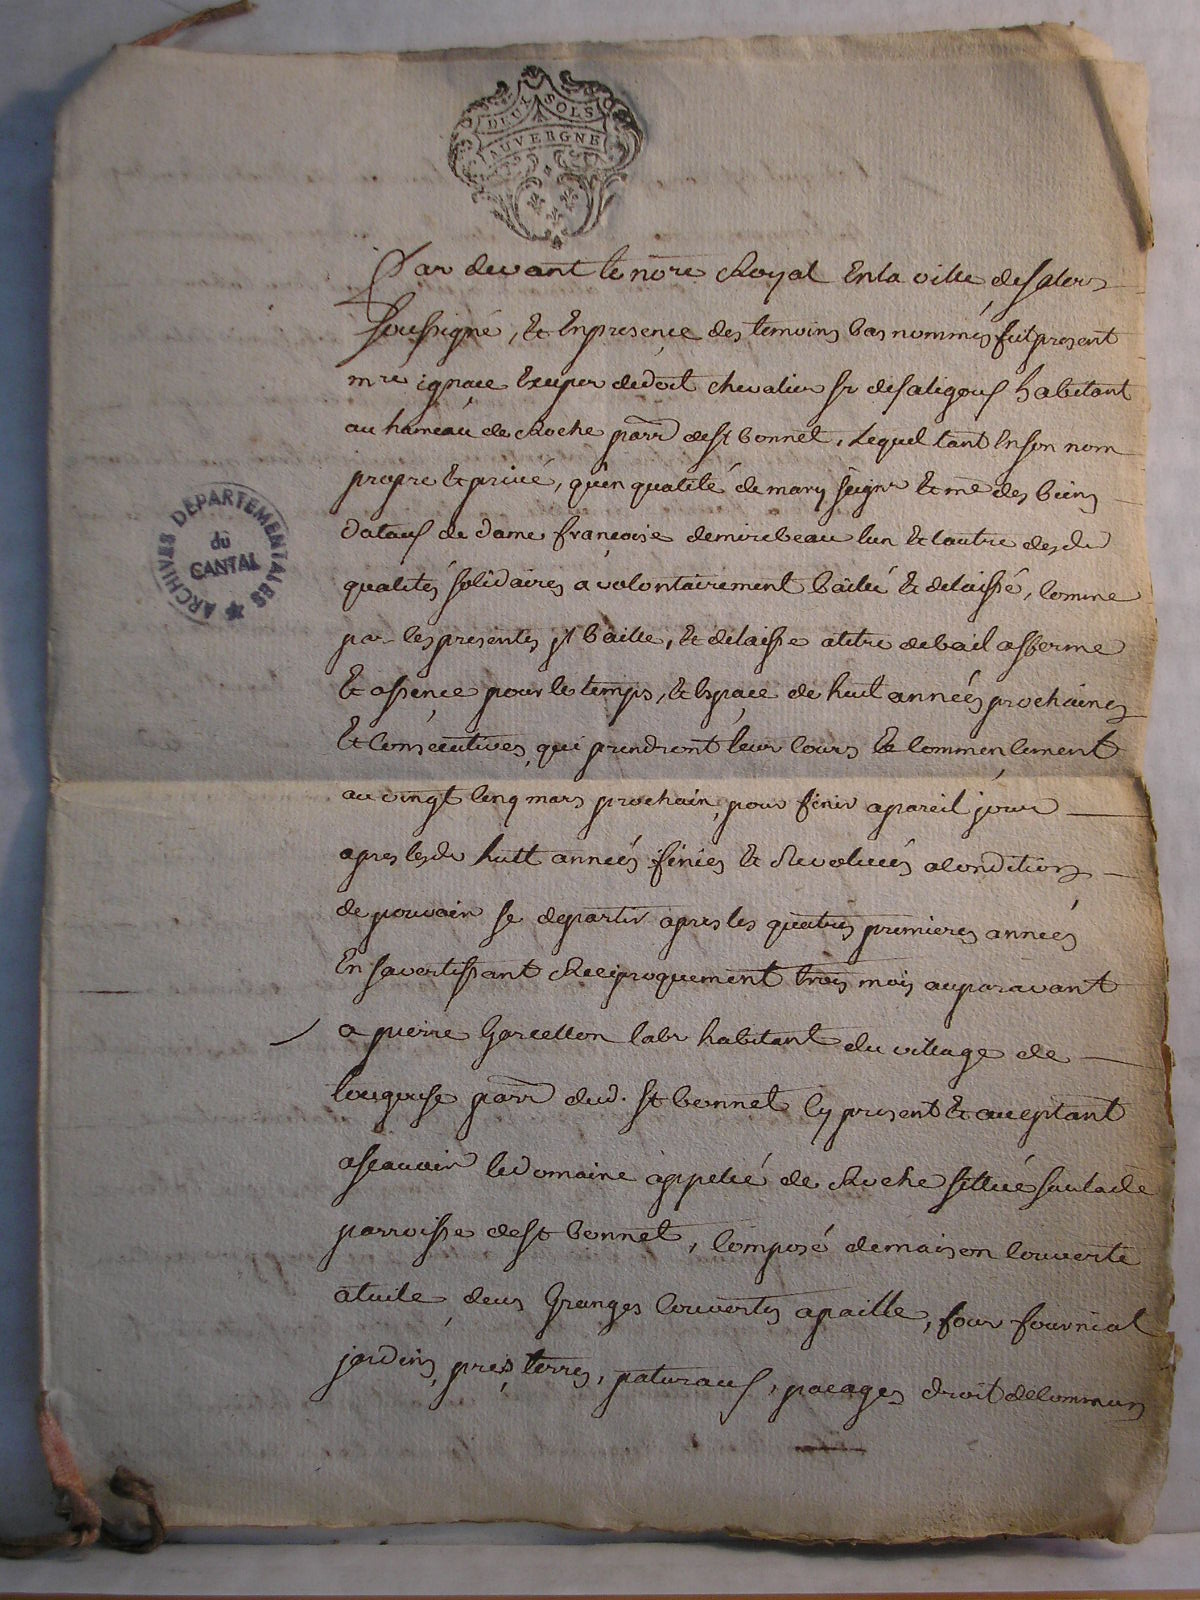 DEUX SOLS
AUVERGNE
ARCHIVES DEPARTEMENTALES
du
CANTAL
Par devant le nore Royal En la ville de Salers
soussigné, & En presence des temoins bas nommés fut present
mre ignace Exuper chevalier sr de saligoux habitant
au hameau de Roche parr de st bonnet, Lequel tant En son nom
propre & privé, qu'en qualité de mary seigr & me des biens
dotaux de dame françoise demirebeau lun & lautre desd
qualités solidaires a volontairement baillé & delaissé, comme
par les presentes jl baille, & delaisse atitre de bail afferme
& assence pour le temps, & Espace de huit années prochaines
& consecutives, qui prendront leur cours & commencement
au vingt cinq mars prochain, pour finir apareil jour
apres lesd huit années finies & Revolues acondition
de pouvoir se departir apres les quatres premieres années
En savertissant Reciproquement trois mois auparavant
a pierre Garcellon labr habitant du village de
parr dud. st bonnet Cy present & acceptant
ascavoir le domaine appellé de Roche sittué sur lade
parroisse de st bonnet, composé de maison couverte
atuile, deux Granges couvertes apaille, four fournial
jardins, pres, terres, paturaux, pacages droit de communs